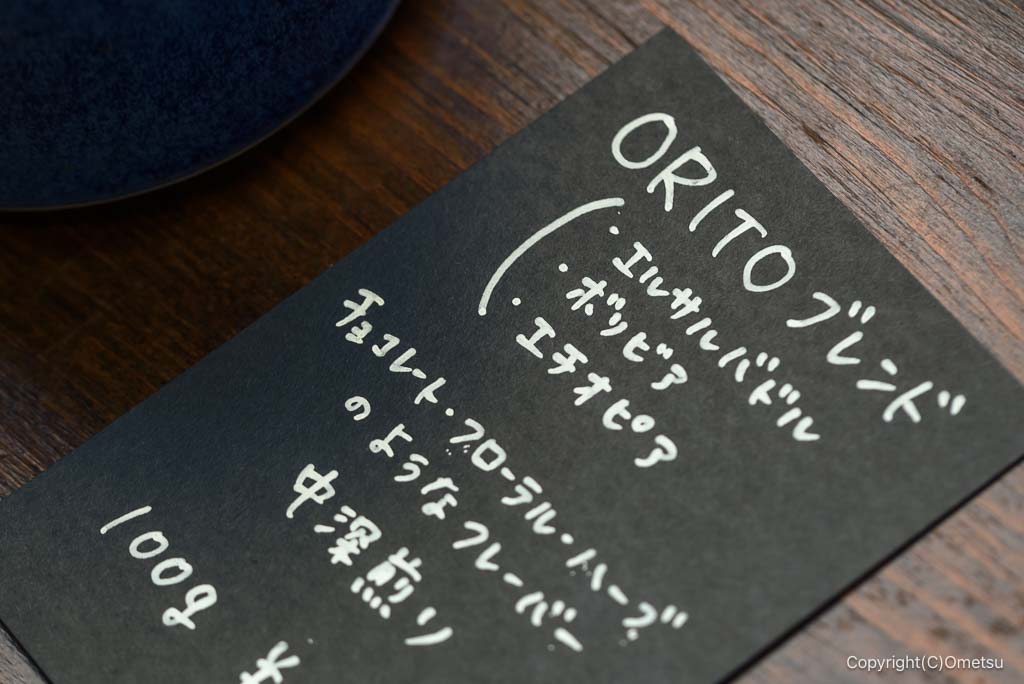 ORITO ブレンド
・エルサルバドル
・ボリビア
・エチオピア
チョコレート・フローラル・ハーブ
のようなフレーバー
中深煎り
100g
Copyright(C)Ometsu